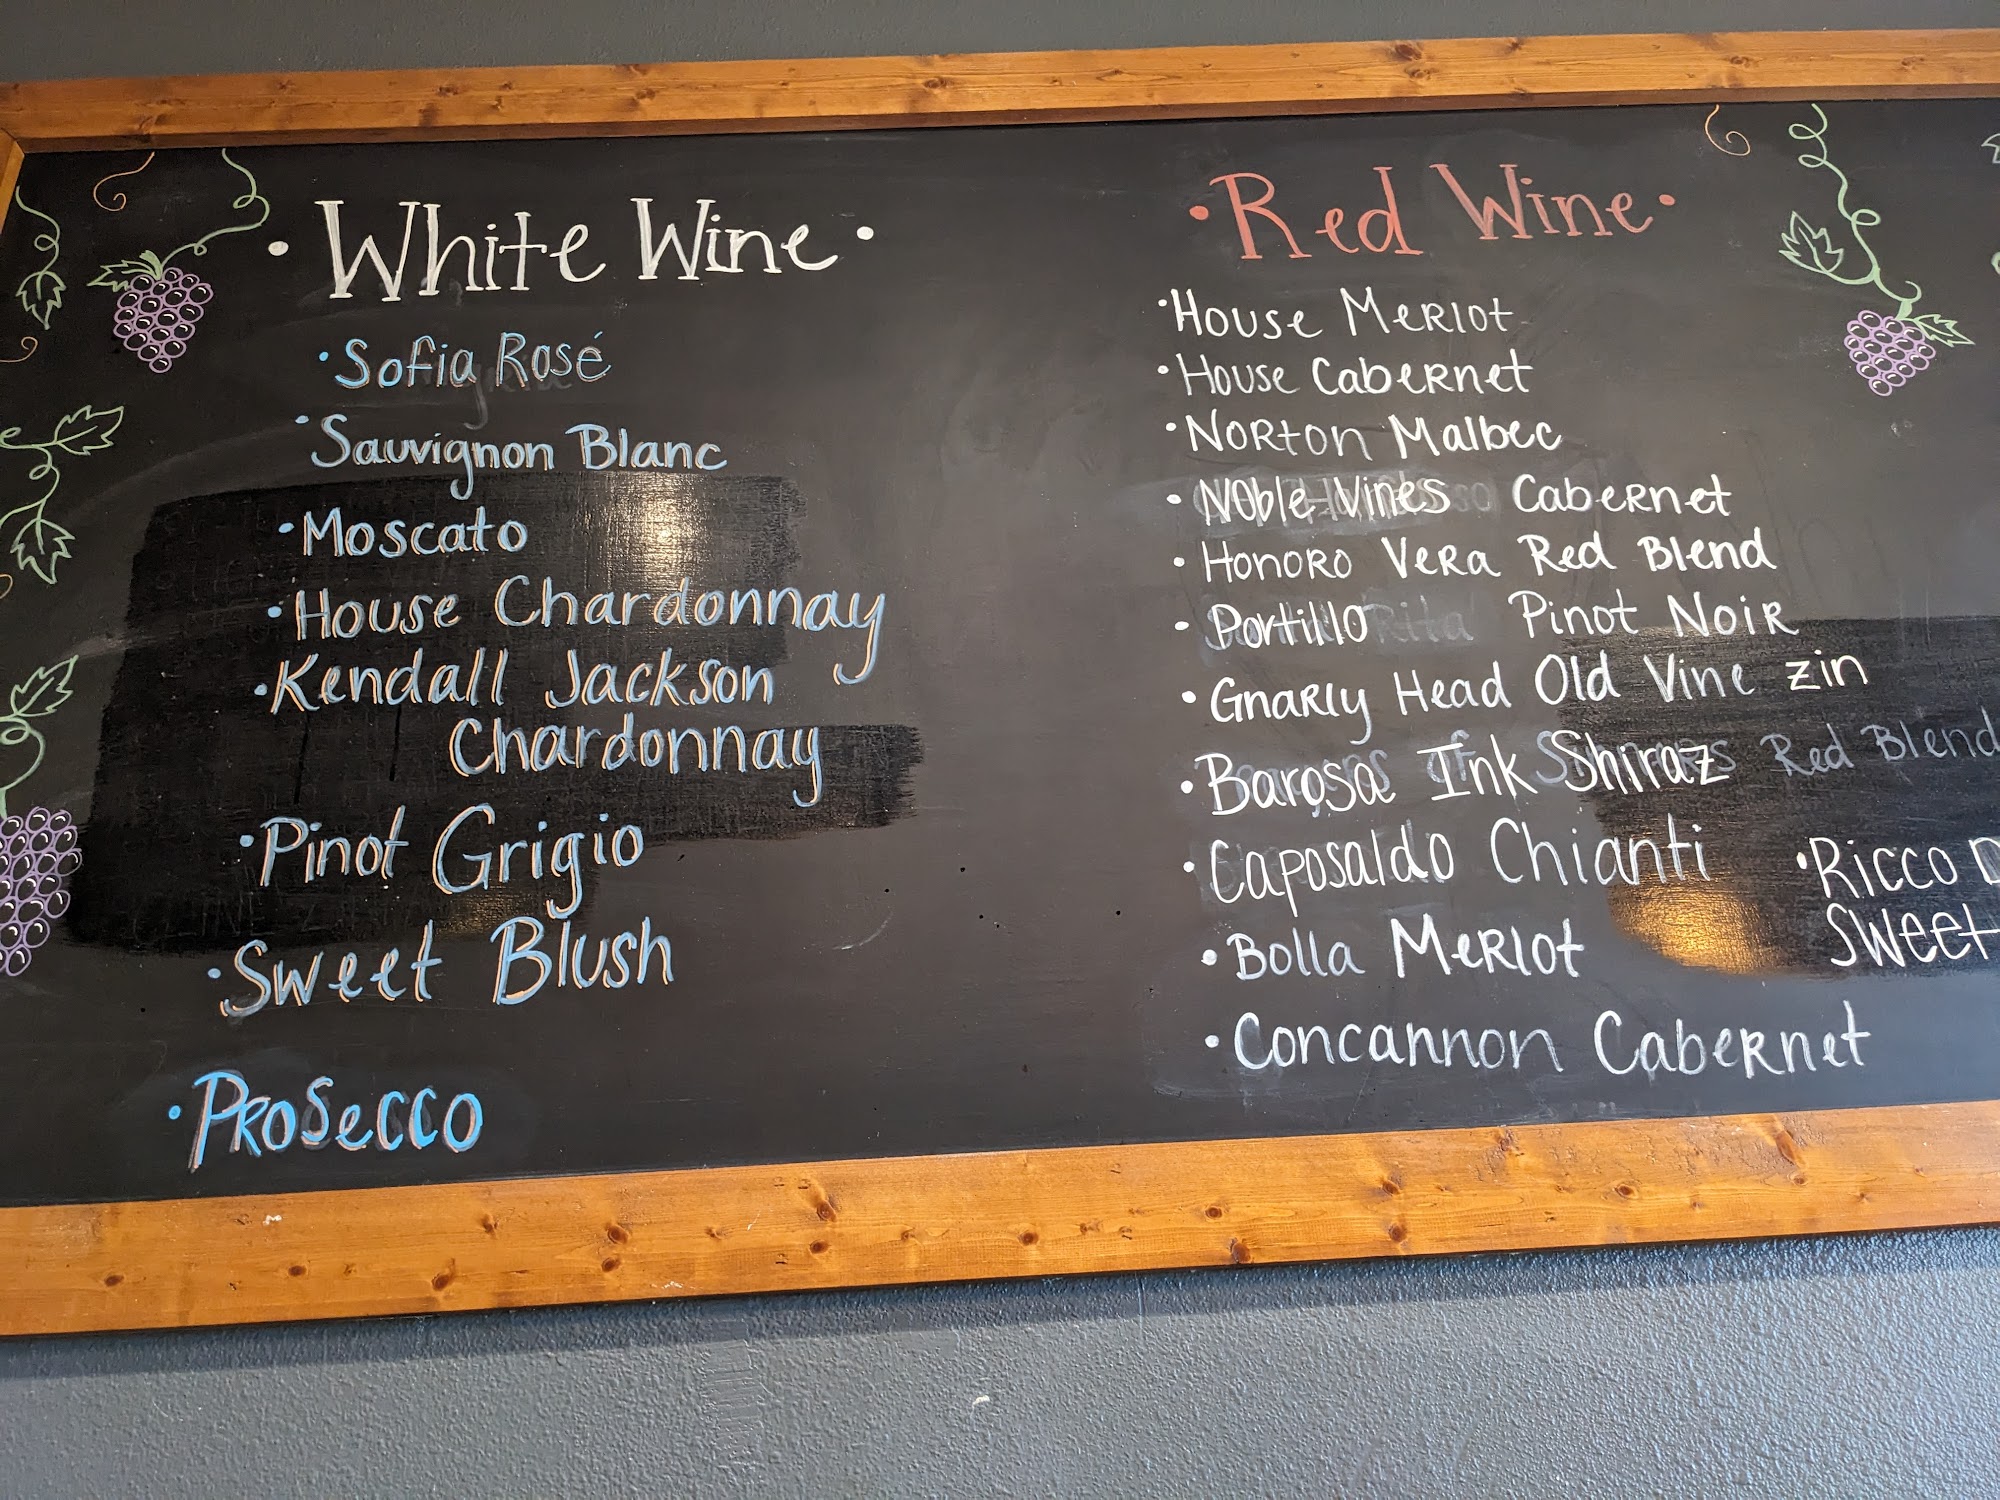 • White Wine •
• Sofia Rosé
• Sauvignon Blanc
• Moscato
• House Chardonnay
• Kendall Jackson
Chardonnay
• Pinot Grigio
• Sweet Blush
• Prosecco
• Red Wine •
• House Merlot
• House Cabernet
• Norton Malbec
• Noble Vines Cabernet
• Honoro Vera Red Blend
• Portillo Pinot Noir
• Gnarly Head Old Vine Zin
• Barosa Ink Shiraz
Red Blend
• Caposaldo Chianti
• Bolla Merlot
• Concannon Cabernet
• Ricco
Sweet